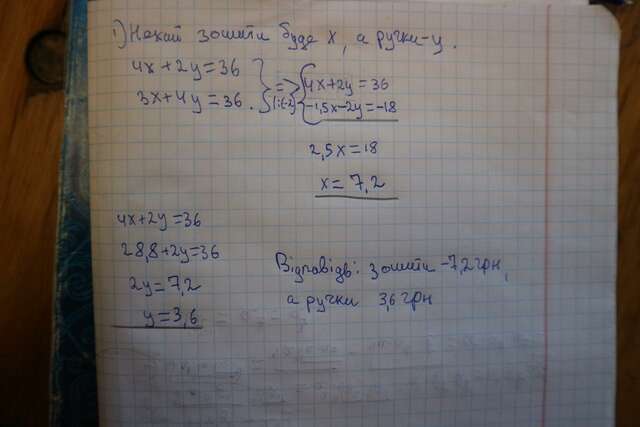 1) Нехай зошити буде x, а ручки - y.
4x + 2y = 36
3x + 4y = 36.
} => |:(-2)
{ 4x + 2y = 36
-1,5x - 2y = -18
2,5x = 18
x = 7,2
4x + 2y = 36
28,8 + 2y = 36
2y = 7,2
y = 3,6
Відповідь: зошити - 7,2 грн,
а ручки 3,6 грн